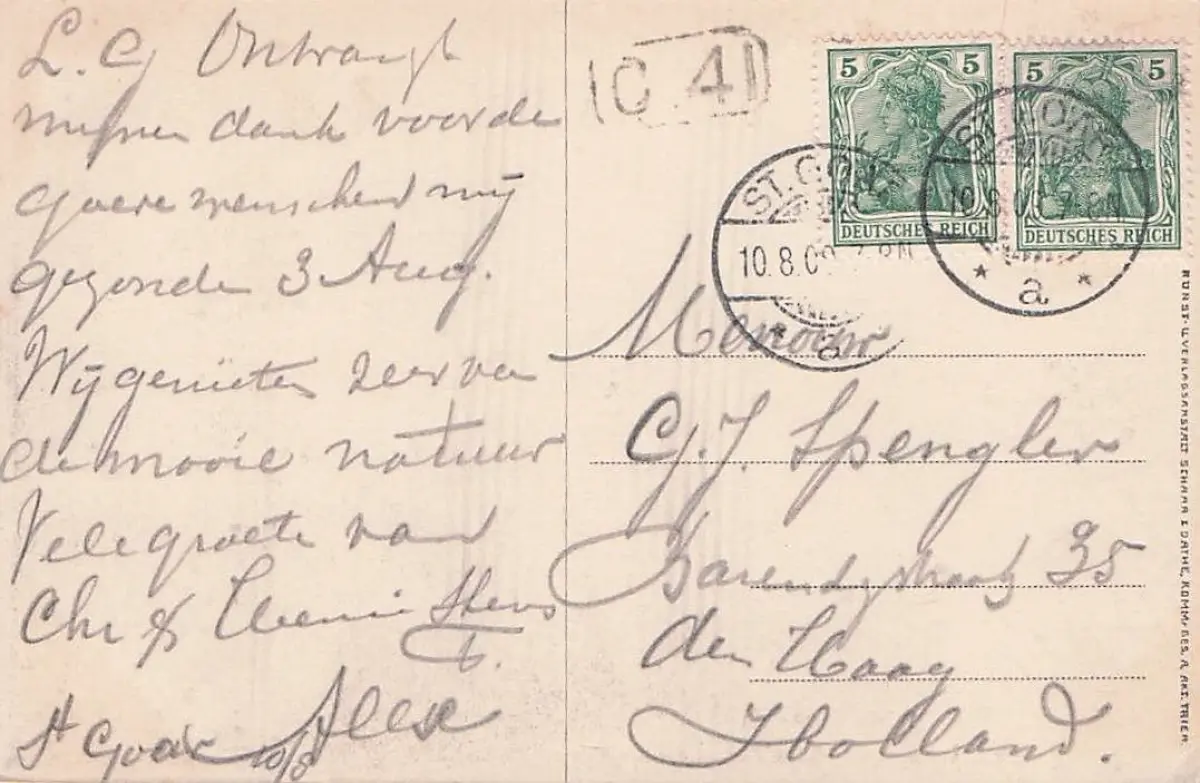 L. G Ontvangt
mijnen dank voor de
goede wenschen mij
gezonden 3 Aug.
Wij genieten zeer van
de mooie natuur
Vele groeten van
Chr &
Alex
St Goar 10/8
C 4
5 5
DEUTSCHES REICH
5 5
DEUTSCHES REICH
ST. GOAR
10.8.09. 7-8N
a
ST. GOAR
10.8.09. 7-8N
* a *
Menouw
G. J. Spengler
Barendstraat 35
den Haag
Holland.
KUNST- U. VERLAGSANSTALT SCHAAR & DATHE, KOMM. GES. A. AKT. TRIER.